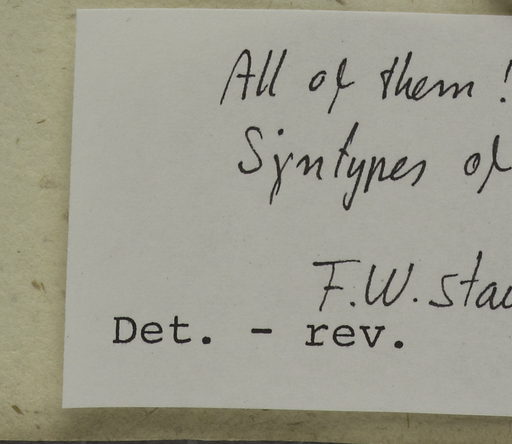 All of them!
Syntypes of
F.W. Sta
Det. - rev.